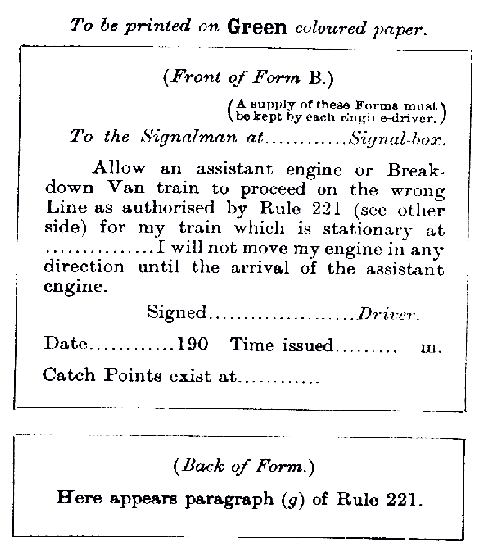 To be printed on Green coloured paper.
(Front of Form B.)
(A supply of these Forms must
be kept by each engine-driver.)
To the Signalman at............Signal-box.
Allow an assistant engine or Break-
down Van train to proceed on the wrong
Line as authorised by Rule 221 (see other
side) for my train which is stationary at
...............I will not move my engine in any
direction until the arrival of the assistant
engine.
Signed.....................Driver.
Date............190 Time issued......... m.
Catch Points exist at............
(Back of Form.)
Here appears paragraph (g) of Rule 221.